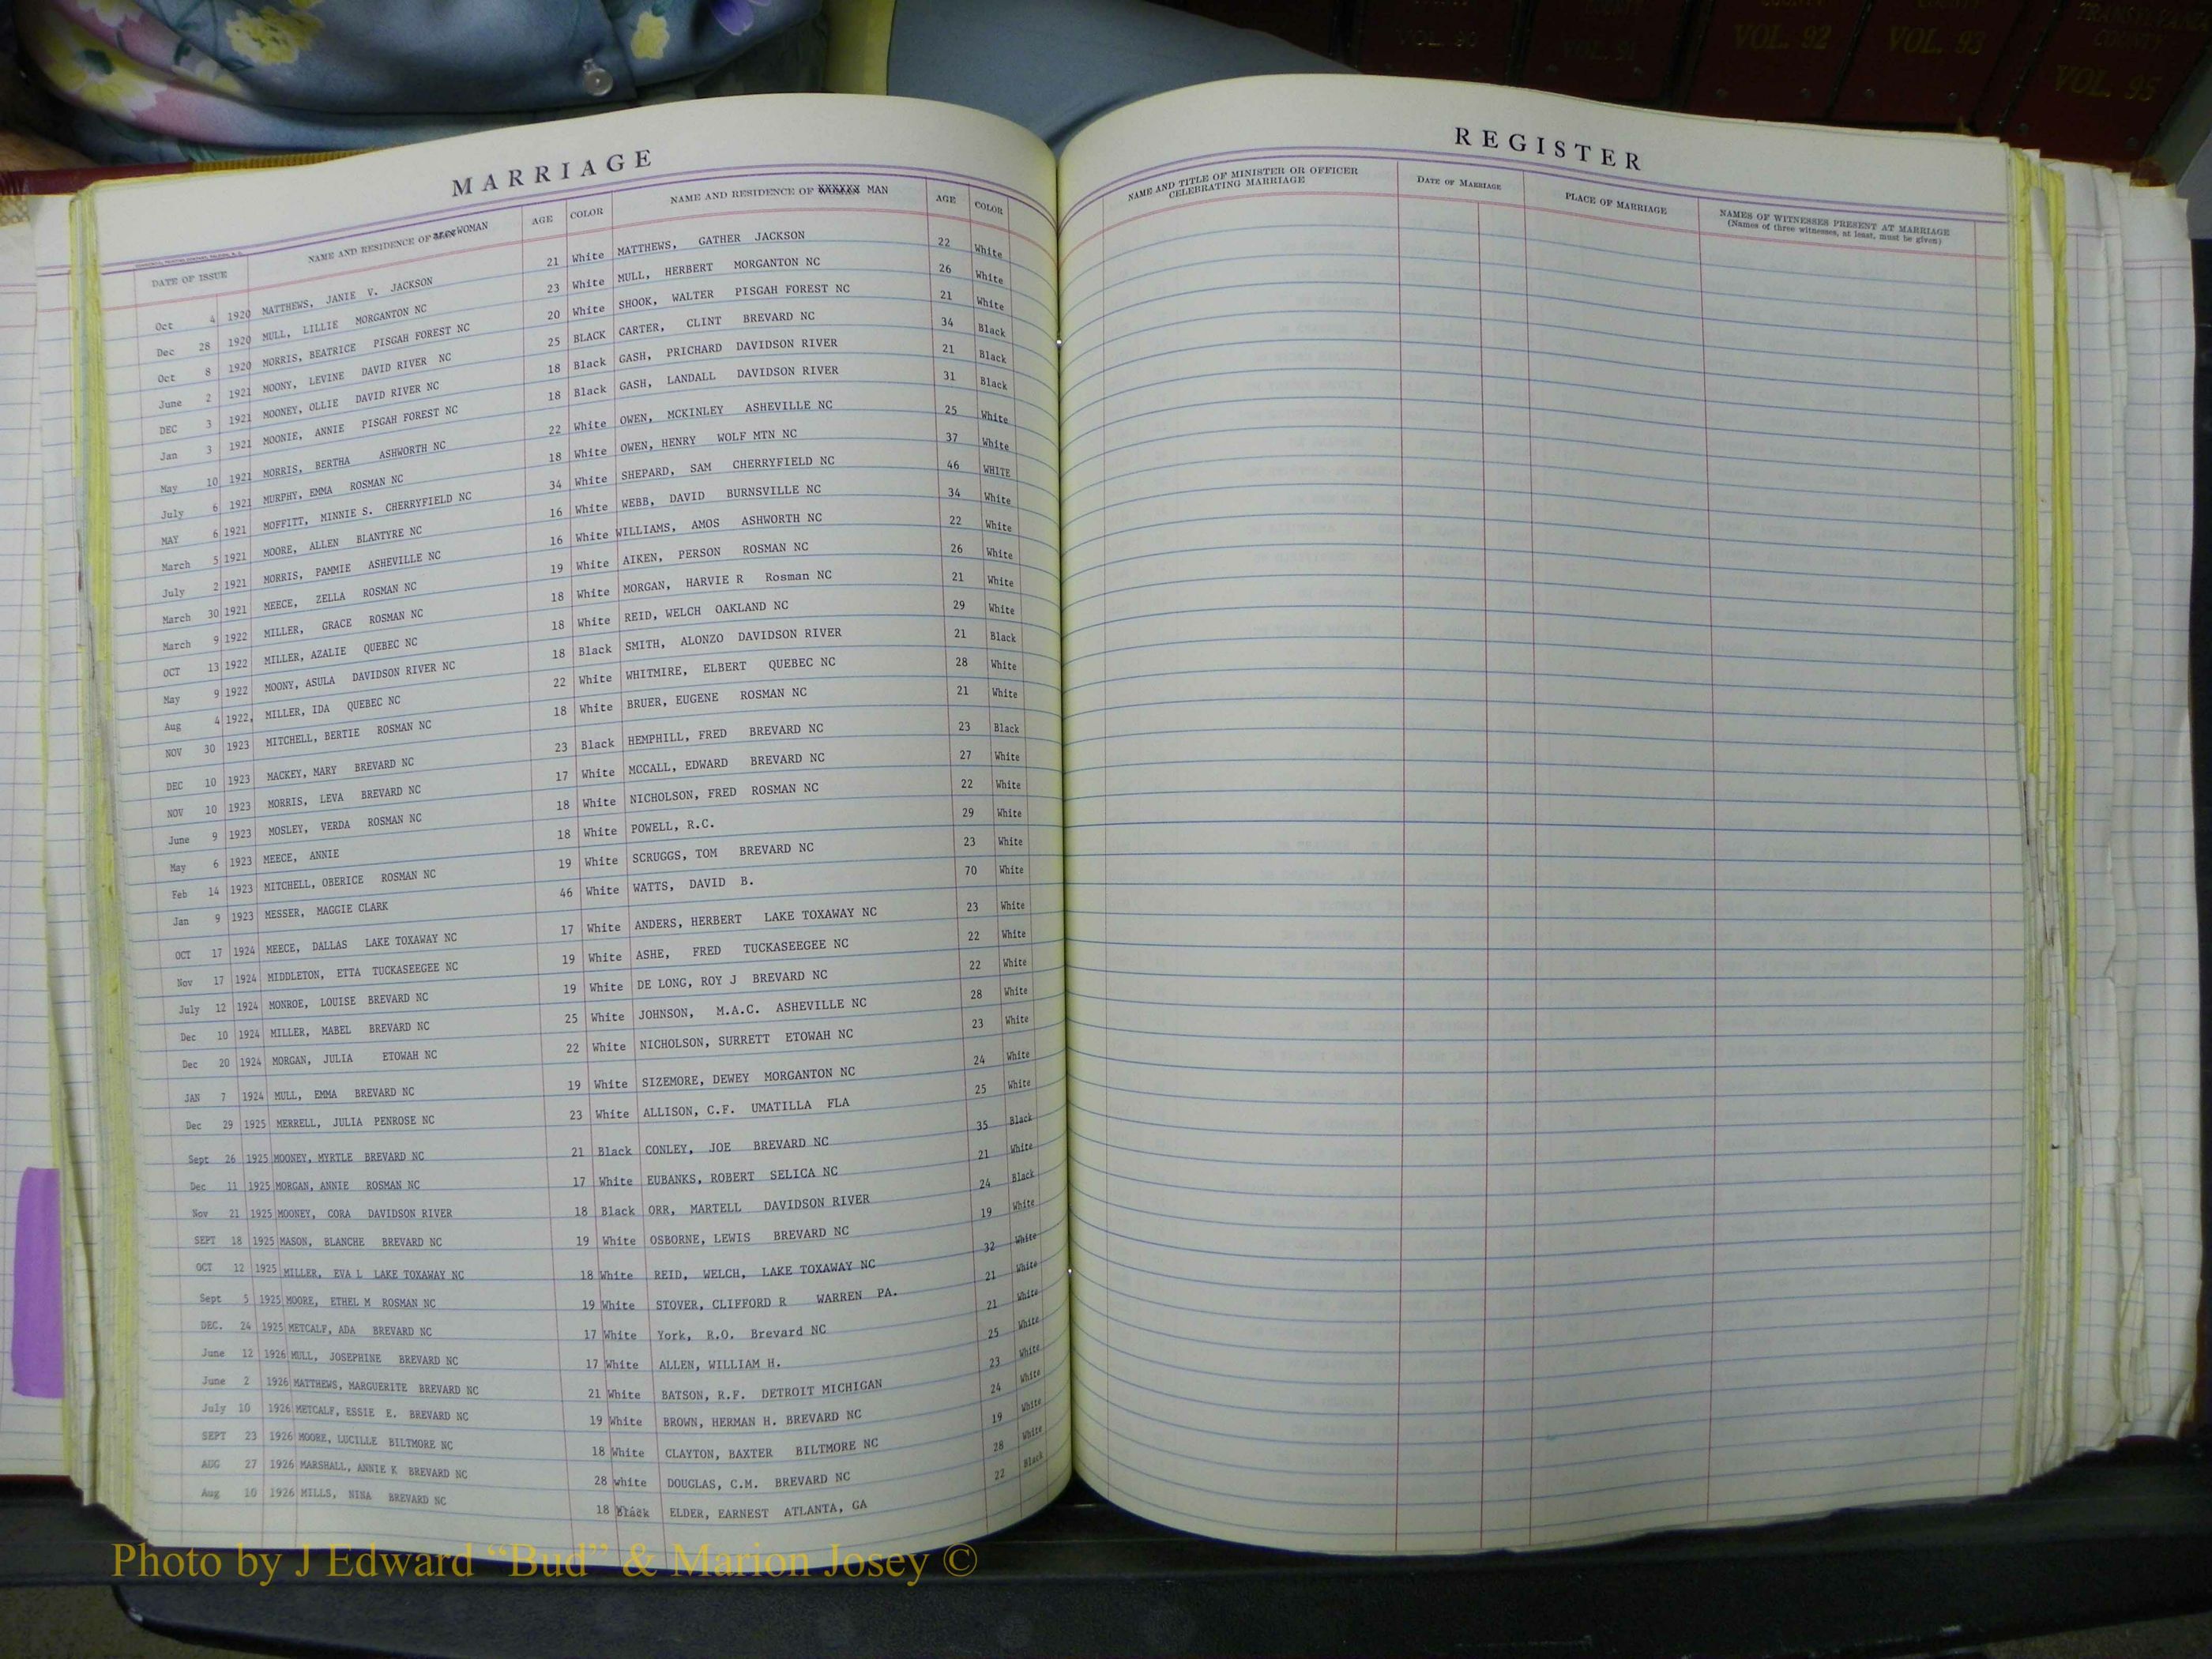 MARRIAGE
DATE OF ISSUE NAME AND RESIDENCE OF WOMAN AGE COLOR NAME AND RESIDENCE OF XXXXXX MAN AGE COLOR
Oct 4 1920 MATTHEWS, JANIE V. JACKSON 21 White MATTHEWS, GATHER JACKSON 22 White
Dec 28 1920 MULL, LILLIE MORGANTON NC 23 White MULL, HERBERT MORGANTON NC 26 White
Oct 8 1920 MORRIS, BEATRICE PISGAH FOREST NC 20 White SHOOK, WALTER PISGAH FOREST NC 21 White
June 2 1921 MOONY, LEVINE DAVID RIVER NC 25 BLACK CARTER, CLINT BREVARD NC 34 Black
DEC 3 1921 MOONEY, OLLIE DAVID RIVER NC 18 Black GASH, PRICHARD DAVIDSON RIVER 21 Black
Jan 3 1921 MOONIE, ANNIE PISGAH FOREST NC 18 Black GASH, LANDALL DAVIDSON RIVER 31 Black
May 10 1921 MORRIS, BERTHA ASHWORTH NC 22 White OWEN, MCKINLEY ASHEVILLE NC 25 White
July 6 1921 MURPHY, EMMA ROSMAN NC 18 White OWEN, HENRY WOLF MTN NC 37 White
MAY 6 1921 MOFFITT, MINNIE S. CHERRYFIELD NC 34 White SHEPARD, SAM CHERRYFIELD NC 46 WHITE
March 5 1921 MOORE, ALLEN BLANTYRE NC 16 White WEBB, DAVID BURNSVILLE NC 34 White
July 2 1921 MORRIS, PAMMIE ASHEVILLE NC 16 White WILLIAMS, AMOS ASHWORTH NC 22 White
March 30 1921 MEECE, ZELLA ROSMAN NC 19 White AIKEN, PERSON ROSMAN NC 26 White
March 9 1922 MILLER, GRACE ROSMAN NC 18 White MORGAN, HARVIE R Rosman NC 21 White
OCT 13 1922 MILLER, AZALIE QUEBEC NC 18 White REID, WELCH OAKLAND NC 29 White
May 9 1922 MOONY, ASULA DAVIDSON RIVER NC 18 Black SMITH, ALONZO DAVIDSON RIVER 21 Black
Aug 4 1922, MILLER, IDA QUEBEC NC 22 White WHITMIRE, ELBERT QUEBEC NC 28 White
NOV 30 1923 MITCHELL, BERTIE ROSMAN NC 18 White BRUER, EUGENE ROSMAN NC 21 White
DEC 10 1923 MACKEY, MARY BREVARD NC 23 Black HEMPHILL, FRED BREVARD NC 23 Black
NOV 10 1923 MORRIS, LEVA BREVARD NC 17 White MCCALL, EDWARD BREVARD NC 27 White
June 9 1923 MOSLEY, VERDA ROSMAN NC 18 White NICHOLSON, FRED ROSMAN NC 22 White
May 6 1923 MEECE, ANNIE 18 White POWELL, R.C. 29 White
Feb 14 1923 MITCHELL, OBERICE ROSMAN NC 19 White SCRUGGS, TOM BREVARD NC 23 White
Jan 9 1923 MESSER, MAGGIE CLARK 46 White WATTS, DAVID B. 70 White
OCT 17 1924 MEECE, DALLAS LAKE TOXAWAY NC 17 White ANDERS, HERBERT LAKE TOXAWAY NC 23 White
Nov 17 1924 MIDDLETON, ETTA TUCKASEEGEE NC 19 White ASHE, FRED TUCKASEEGEE NC 22 White
July 12 1924 MONROE, LOUISE BREVARD NC 19 White DE LONG, ROY J BREVARD NC 22 White
Dec 10 1924 MILLER, MABEL BREVARD NC 25 White JOHNSON, M.A.C. ASHEVILLE NC 28 White
Dec 20 1924 MORGAN, JULIA ETOWAH NC 22 White NICHOLSON, SURRETT ETOWAH NC 23 White
JAN 7 1924 MULL, EMMA BREVARD NC 19 White SIZEMORE, DEWEY MORGANTON NC 24 White
Dec 29 1925 MERRELL, JULIA PENROSE NC 23 White ALLISON, C.F. UMATILLA FLA 25 White
Sept 26 1925 MOONEY, MYRTLE BREVARD NC 21 Black CONLEY, JOE BREVARD NC 35 Black
Dec 11 1925 MORGAN, ANNIE ROSMAN NC 17 White EUBANKS, ROBERT SELICA NC 21 White
Nov 21 1925 MOONEY, CORA DAVIDSON RIVER 18 Black ORR, MARTELL DAVIDSON RIVER 24 Black
SEPT 18 1925 MASON, BLANCHE BREVARD NC 19 White OSBORNE, LEWIS BREVARD NC 19 White
OCT 12 1925 MILLER, EVA L LAKE TOXAWAY NC 18 White REID, WELCH, LAKE TOXAWAY NC 32 White
Sept 5 1925 MOORE, ETHEL M ROSMAN NC 19 White STOVER, CLIFFORD R WARREN PA. 21 White
DEC. 24 1925 METCALF, ADA BREVARD NC 17 White York, R.O. Brevard NC 21 White
June 12 1926 MULL, JOSEPHINE BREVARD NC 17 White ALLEN, WILLIAM H. 25 White
June 2 1926 MATTHEWS, MARGUERITE BREVARD NC 21 White BATSON, R.F. DETROIT MICHIGAN 23 White
July 10 1926 METCALF, ESSIE E. BREVARD NC 19 White BROWN, HERMAN H. BREVARD NC 24 White
SEPT 23 1926 MOORE, LUCILLE BILTMORE NC 18 White CLAYTON, BAXTER BILTMORE NC 19 White
AUG 27 1926 MARSHALL, ANNIE K BREVARD NC 28 white DOUGLAS, C.M. BREVARD NC 28 White
Aug 10 1926 MILLS, NINA BREVARD NC 18 Black ELDER, EARNEST ATLANTA, GA 22 Black
REGISTER
NAME AND TITLE OF MINISTER OR OFFICER CELEBRATING MARRIAGE DATE OF MARRIAGE PLACE OF MARRIAGE NAMES OF WITNESSES PRESENT AT MARRIAGE
(Names of three witnesses, at least, must be given)
VOL. 92
VOL. 93
COUNTY
VOL. 95
Photo by J Edward “Bud” & Marion Josey ©